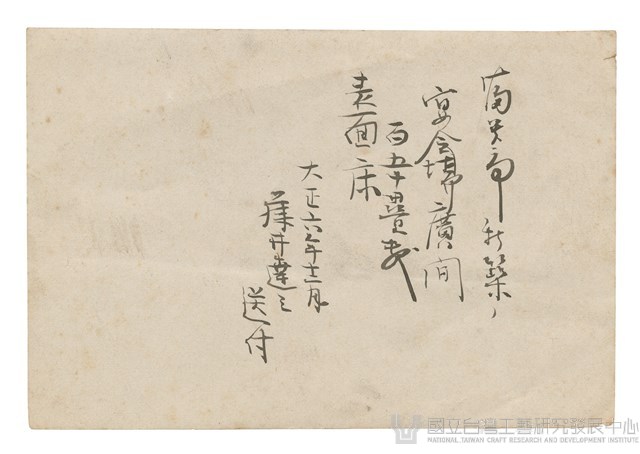 新築ノ
宴会場廣間
百五十畳敷
表面床
大正六年十二月
藤井達之
送付
國立台灣工藝研究發展中心
NATIONAL TAIWAN CRAFT RESEARCH AND DEVELOPMENT INSTITUTE